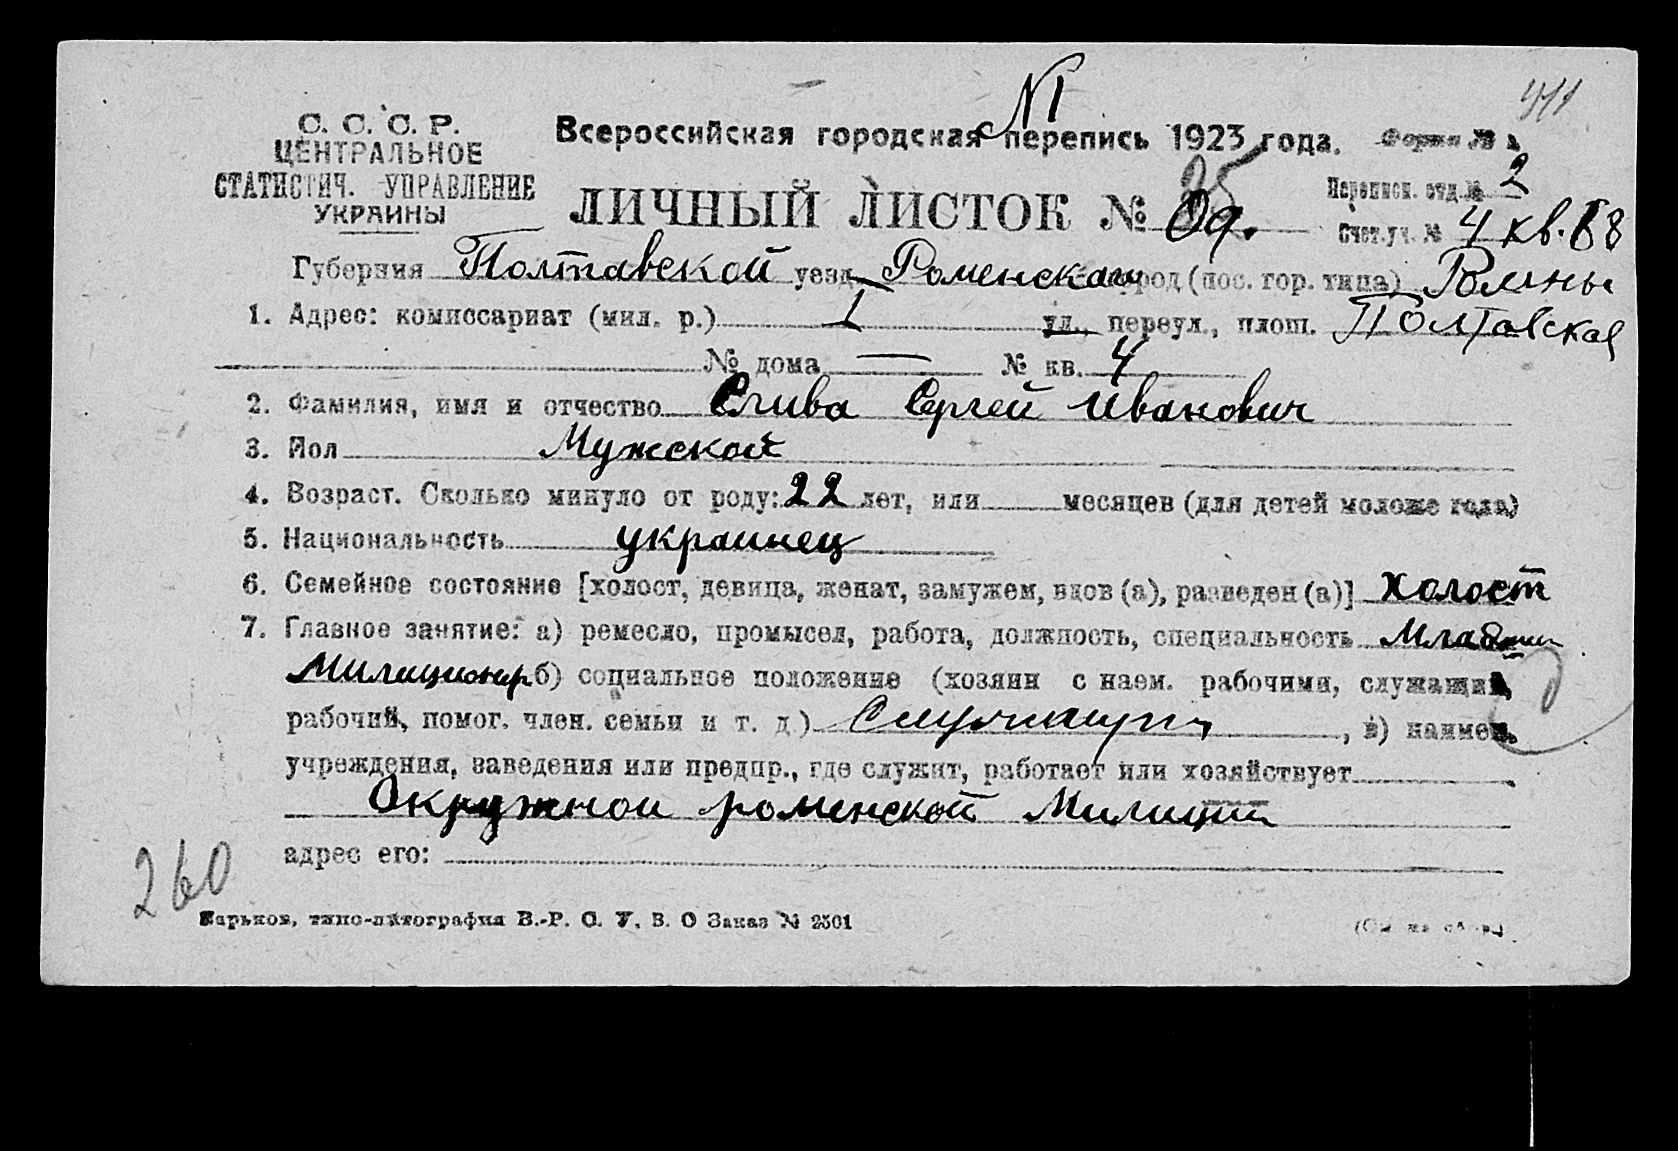 №1
411
С. С. С. Р.
ЦЕНТРАЛЬНОЕ
СТАТИСТИЧ. УПРАВЛЕНИЕ
УКРАИНЫ
Всероссийская городская перепись 1923 года.
Форма №
ЛИЧНЫЙ ЛИСТОК №
Переписн. отд. № 2
Счет. уч. № 4 кв. 68
Губерния Полтавской уезд Роменскаго город (пос. гор. типа) Ромны
1. Адрес: комиссариат (мил. р.) 1 ул., переул., площ. Полтавская
№ дома — № кв. 4
2. Фамилия, имя и отчество Слива Сергей Иванович
3. Пол Мужской
4. Возраст. Сколько минуло от роду: 22 лет, или месяцев (для детей моложе года)
5. Национальность украинец
6. Семейное состояние [холост, девица, женат, замужем, вдов (а), разведен (а)] Холост
7. Главное занятие: а) ремесло, промысел, работа, должность, специальность Младший
Милиционер б) социальное положение (хозяин с наем. рабочими, служащий,
рабочий, помог. член. семьи и т. д.) Служащий, в) наимен.
учреждения, заведения или предпр., где служит, работает или хозяйствует
Окружной роменской Милиции
адрес его:
260
Харьков, типо-литография В.-Р. С. У. В. О Заказ № 2501